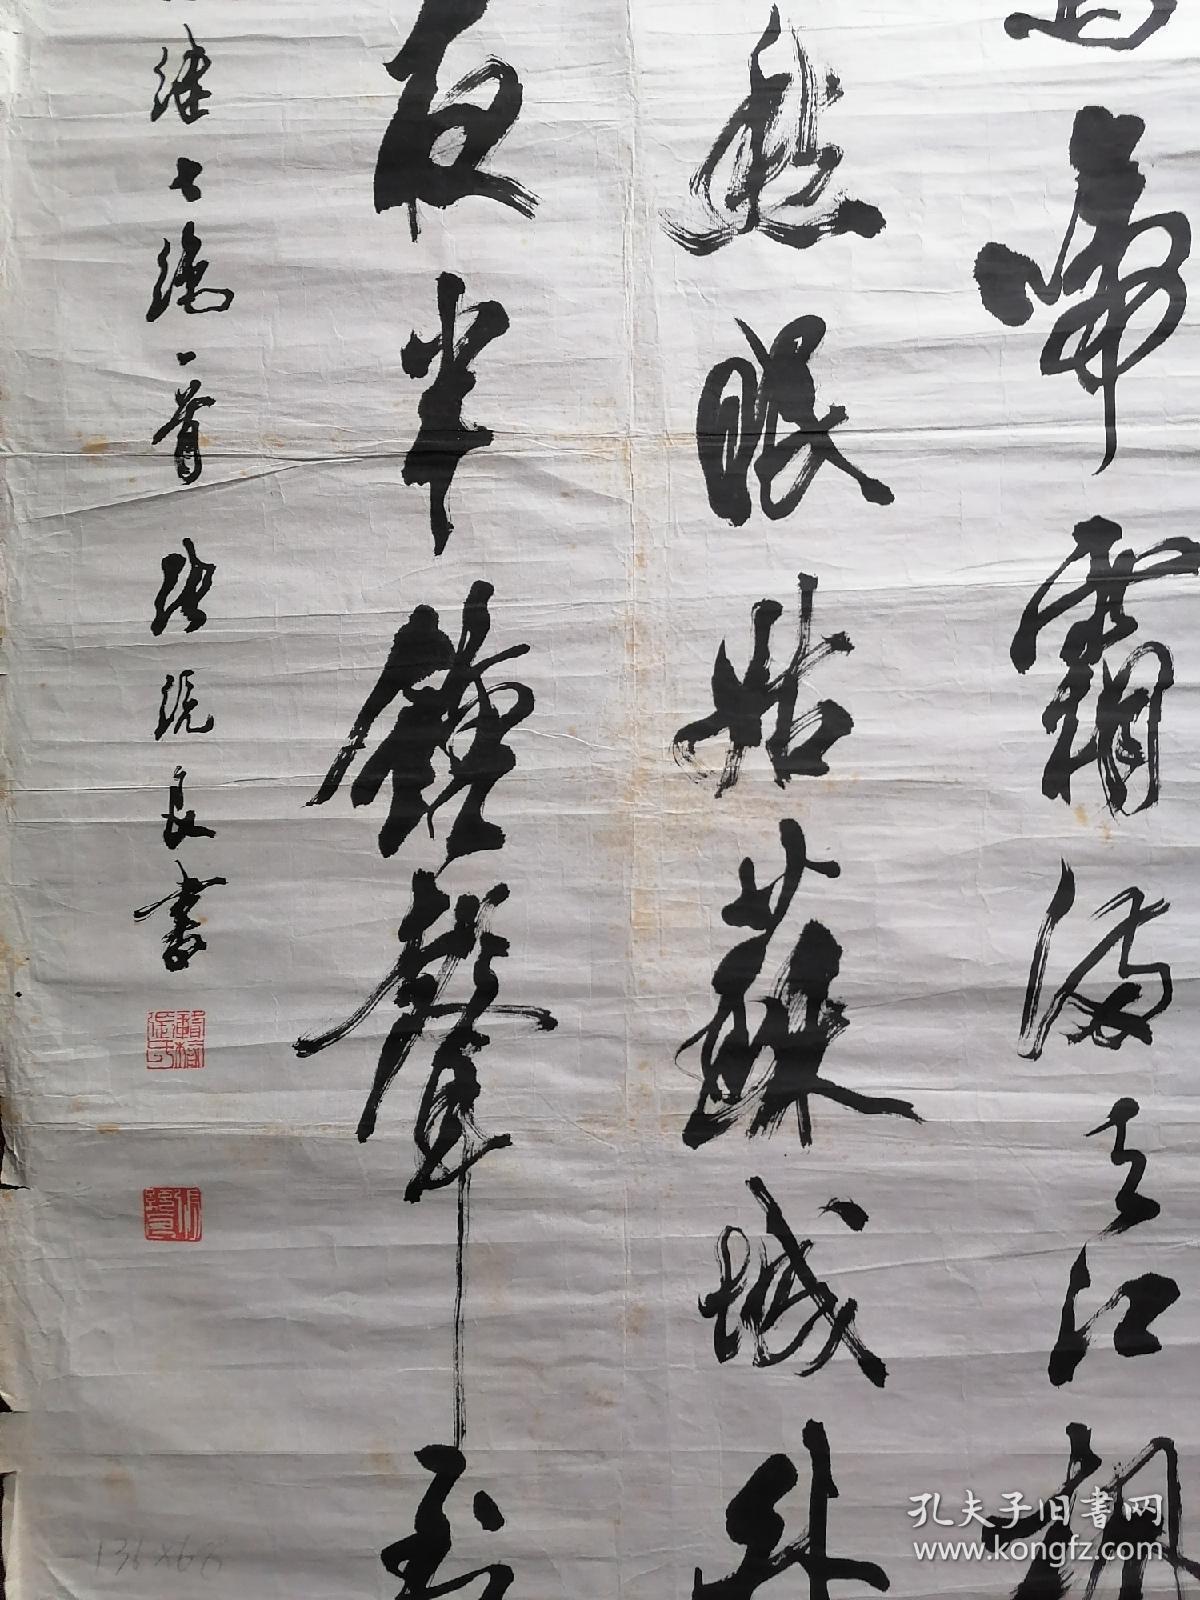 啼霜满天江枫
愁眠姑蘇城外
夜半鐘聲到
继七绝一首 张 良书
136×68
孔夫子旧书网
www.kongfz.com